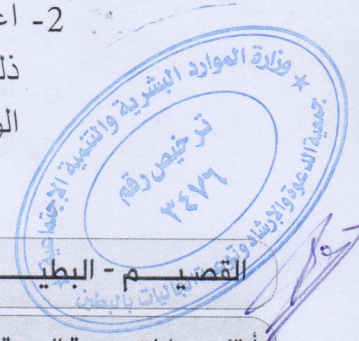 2- اع
ذل
الو
★ وزارة الموارد البشرية والتنمية الاجتماعية ★
جمعية الدعوة والإرشاد وتوعية الجاليات بالبطين
ترخيص رقم
٣٤٧٦
القصيـــم - البطيـــ